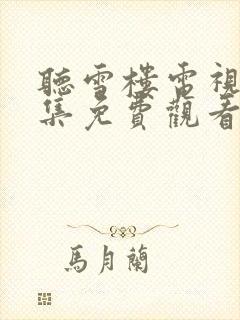 聽雪樓電視
集免費觀看
馬月蘭